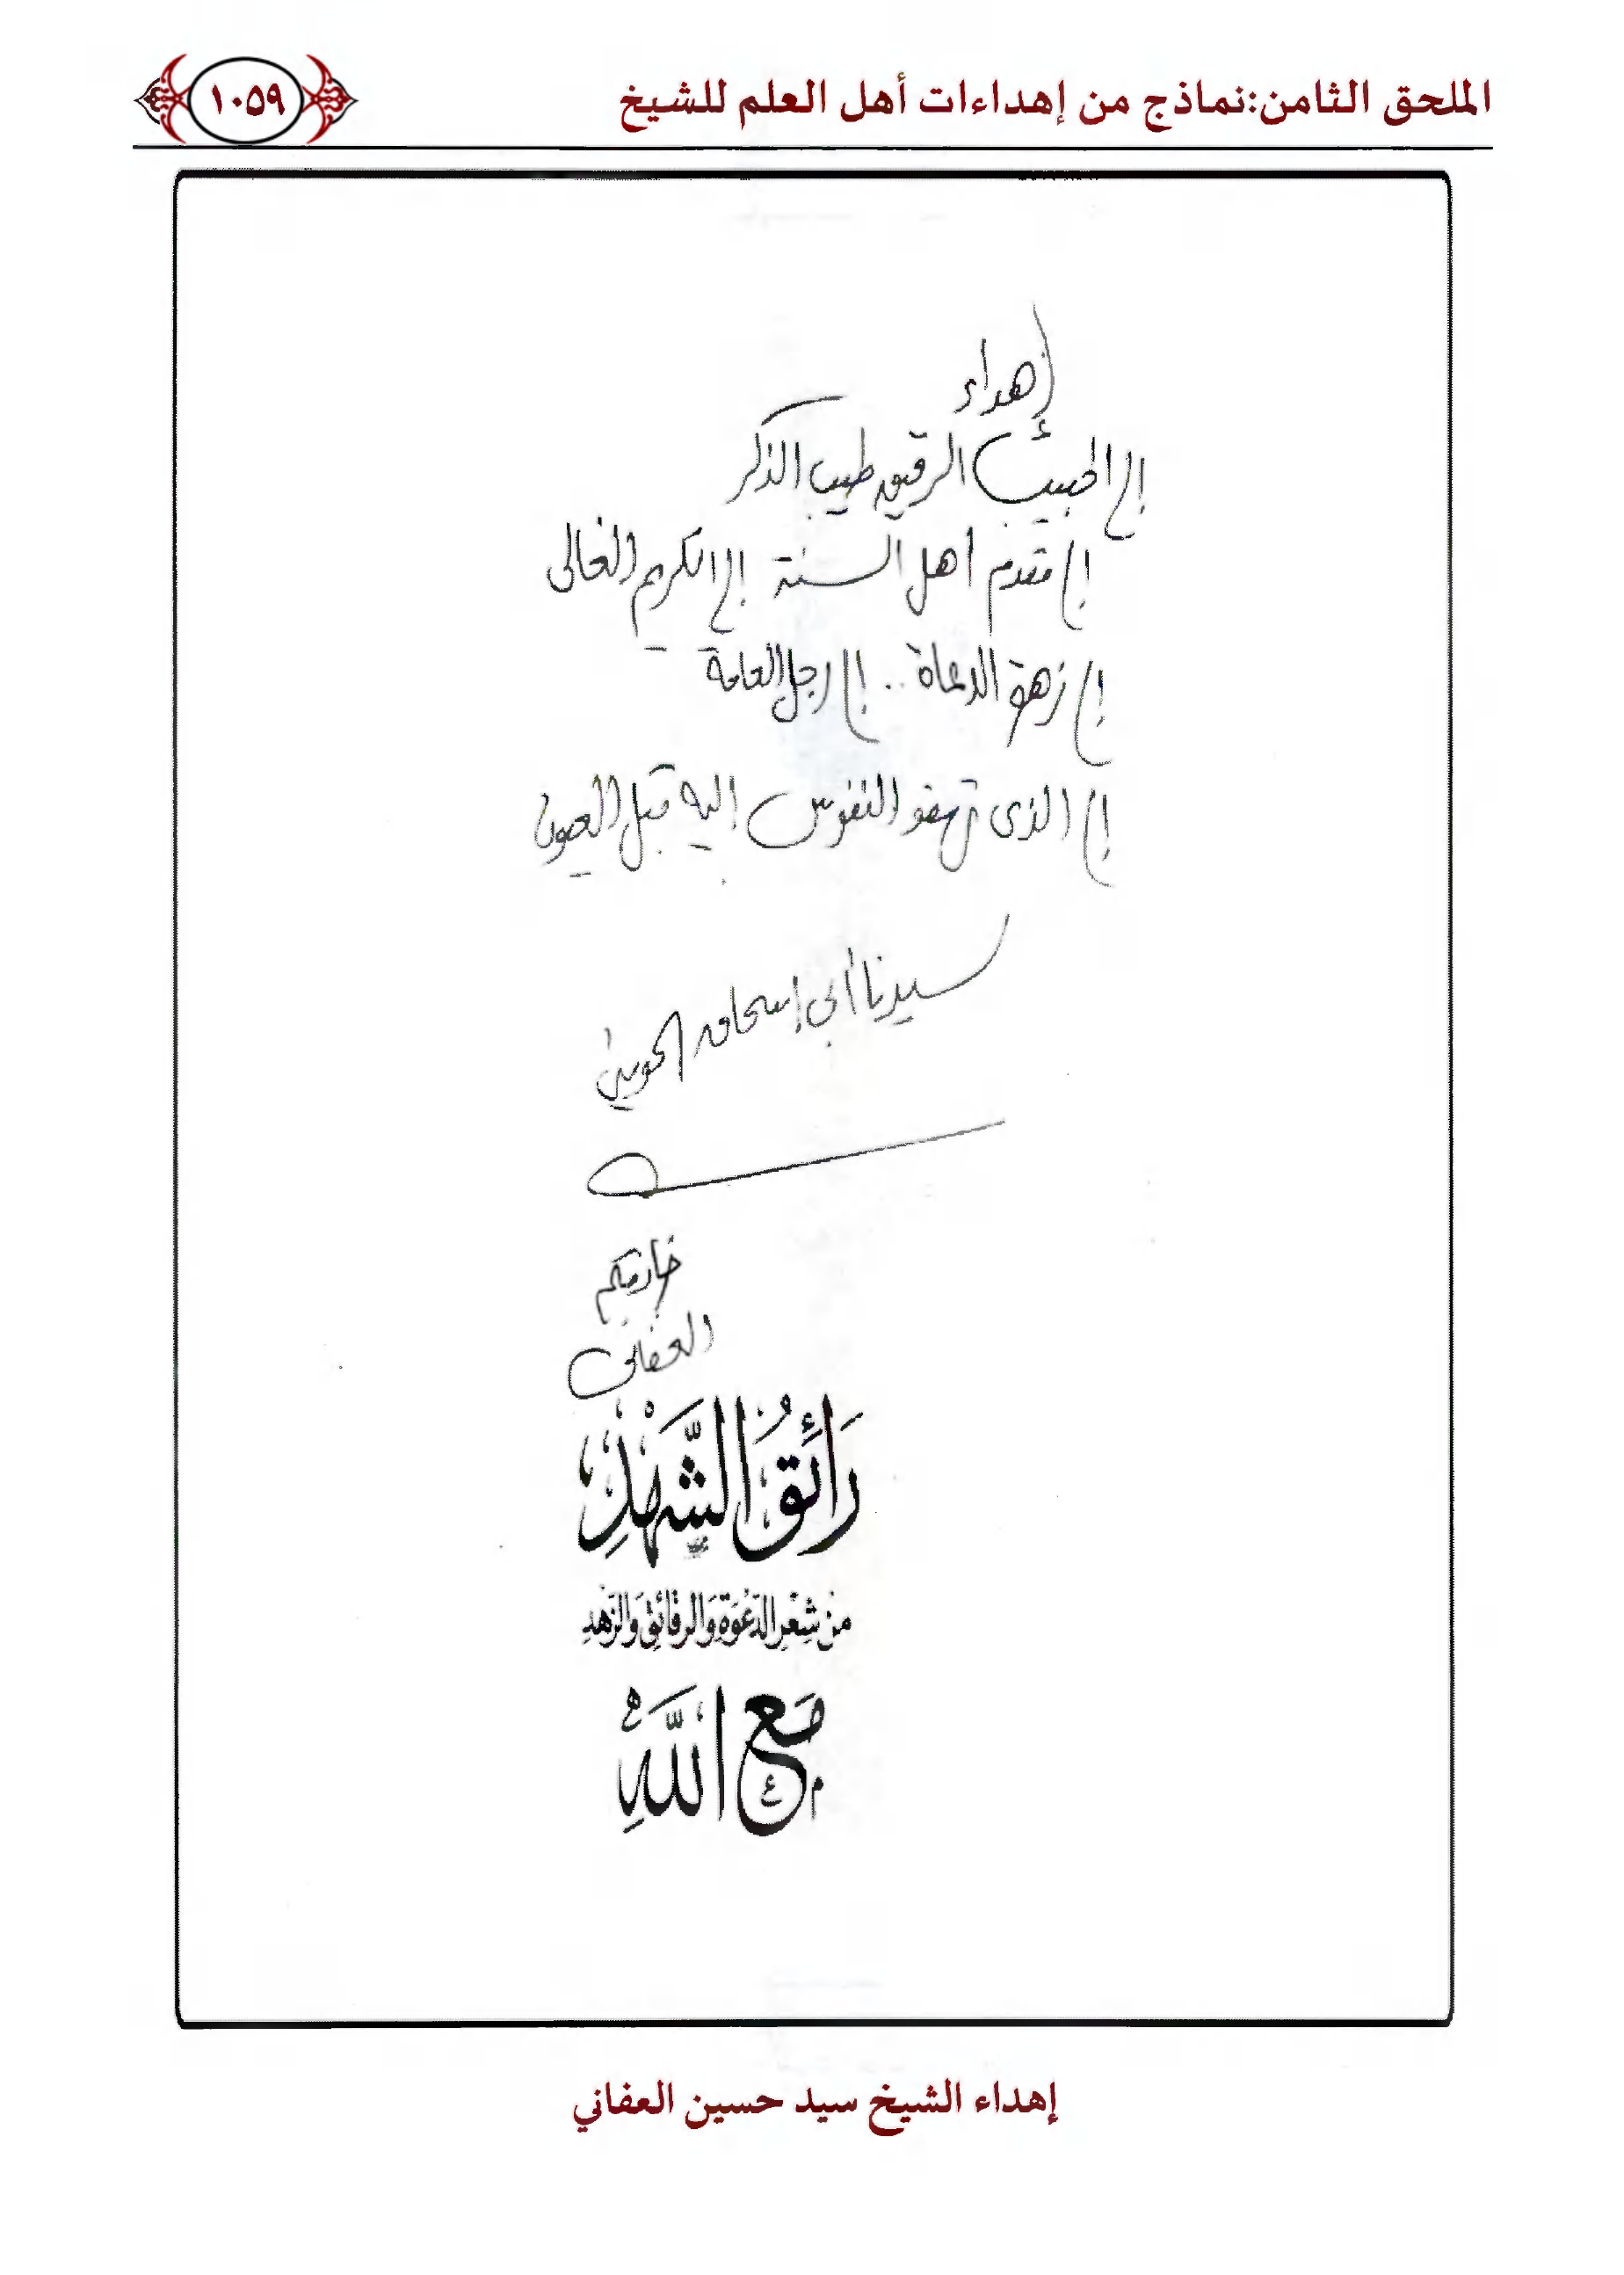 الملحق الثامن:نماذج من إهداءات أهل العلم للشيخ
١٠٥٩
إهداء
إلى الحبيب الرقيق طيب الذكر
إلى مقدم أهل السنة إلى الكريم الغالى
إلى زهرة الدعاة .. إلى رجل العامة
إلى الذى تهفو النفوس إليه قبل العيون
سيدنا أبى إسحاق الحوينى
خادمكم
العفانى
رَائِقُ الشَّهْدِ
مِنْ شِعْرِ الدَّعْوَةِ وَالرقَائِقِ وَالزُّهْدِ
مَعَ اللَّهِ
إهداء الشيخ سيد حسين العفاني